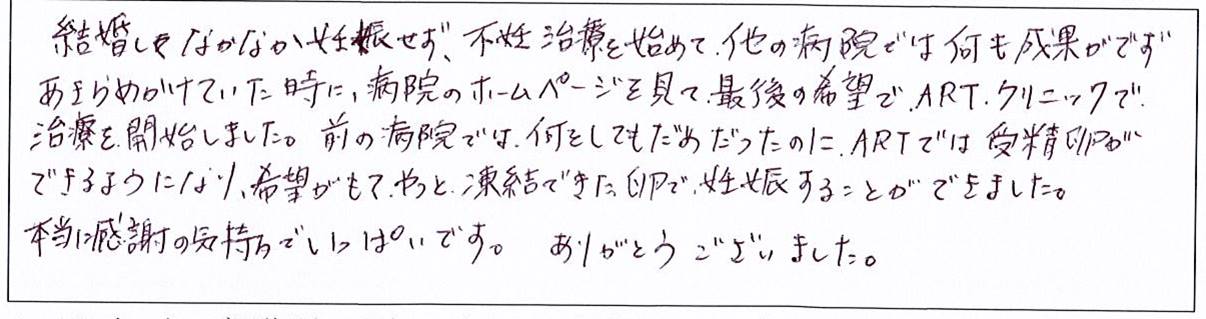 結婚しやなかなか妊娠せず、不妊治療を始めて、他の病院では何も成果がでず
あきらめかけていた時に、病院のホームページを見て、最後の希望で、ART.クリニックで、
治療を開始しました。前の病院では、何をしてもだめだったのに、ARTでは受精卵が
できるようになり、希望がもて、やっと、凍結できた卵で、妊娠することができました。
本当に感謝の気持ちでいっぱいです。 ありがとうございました。